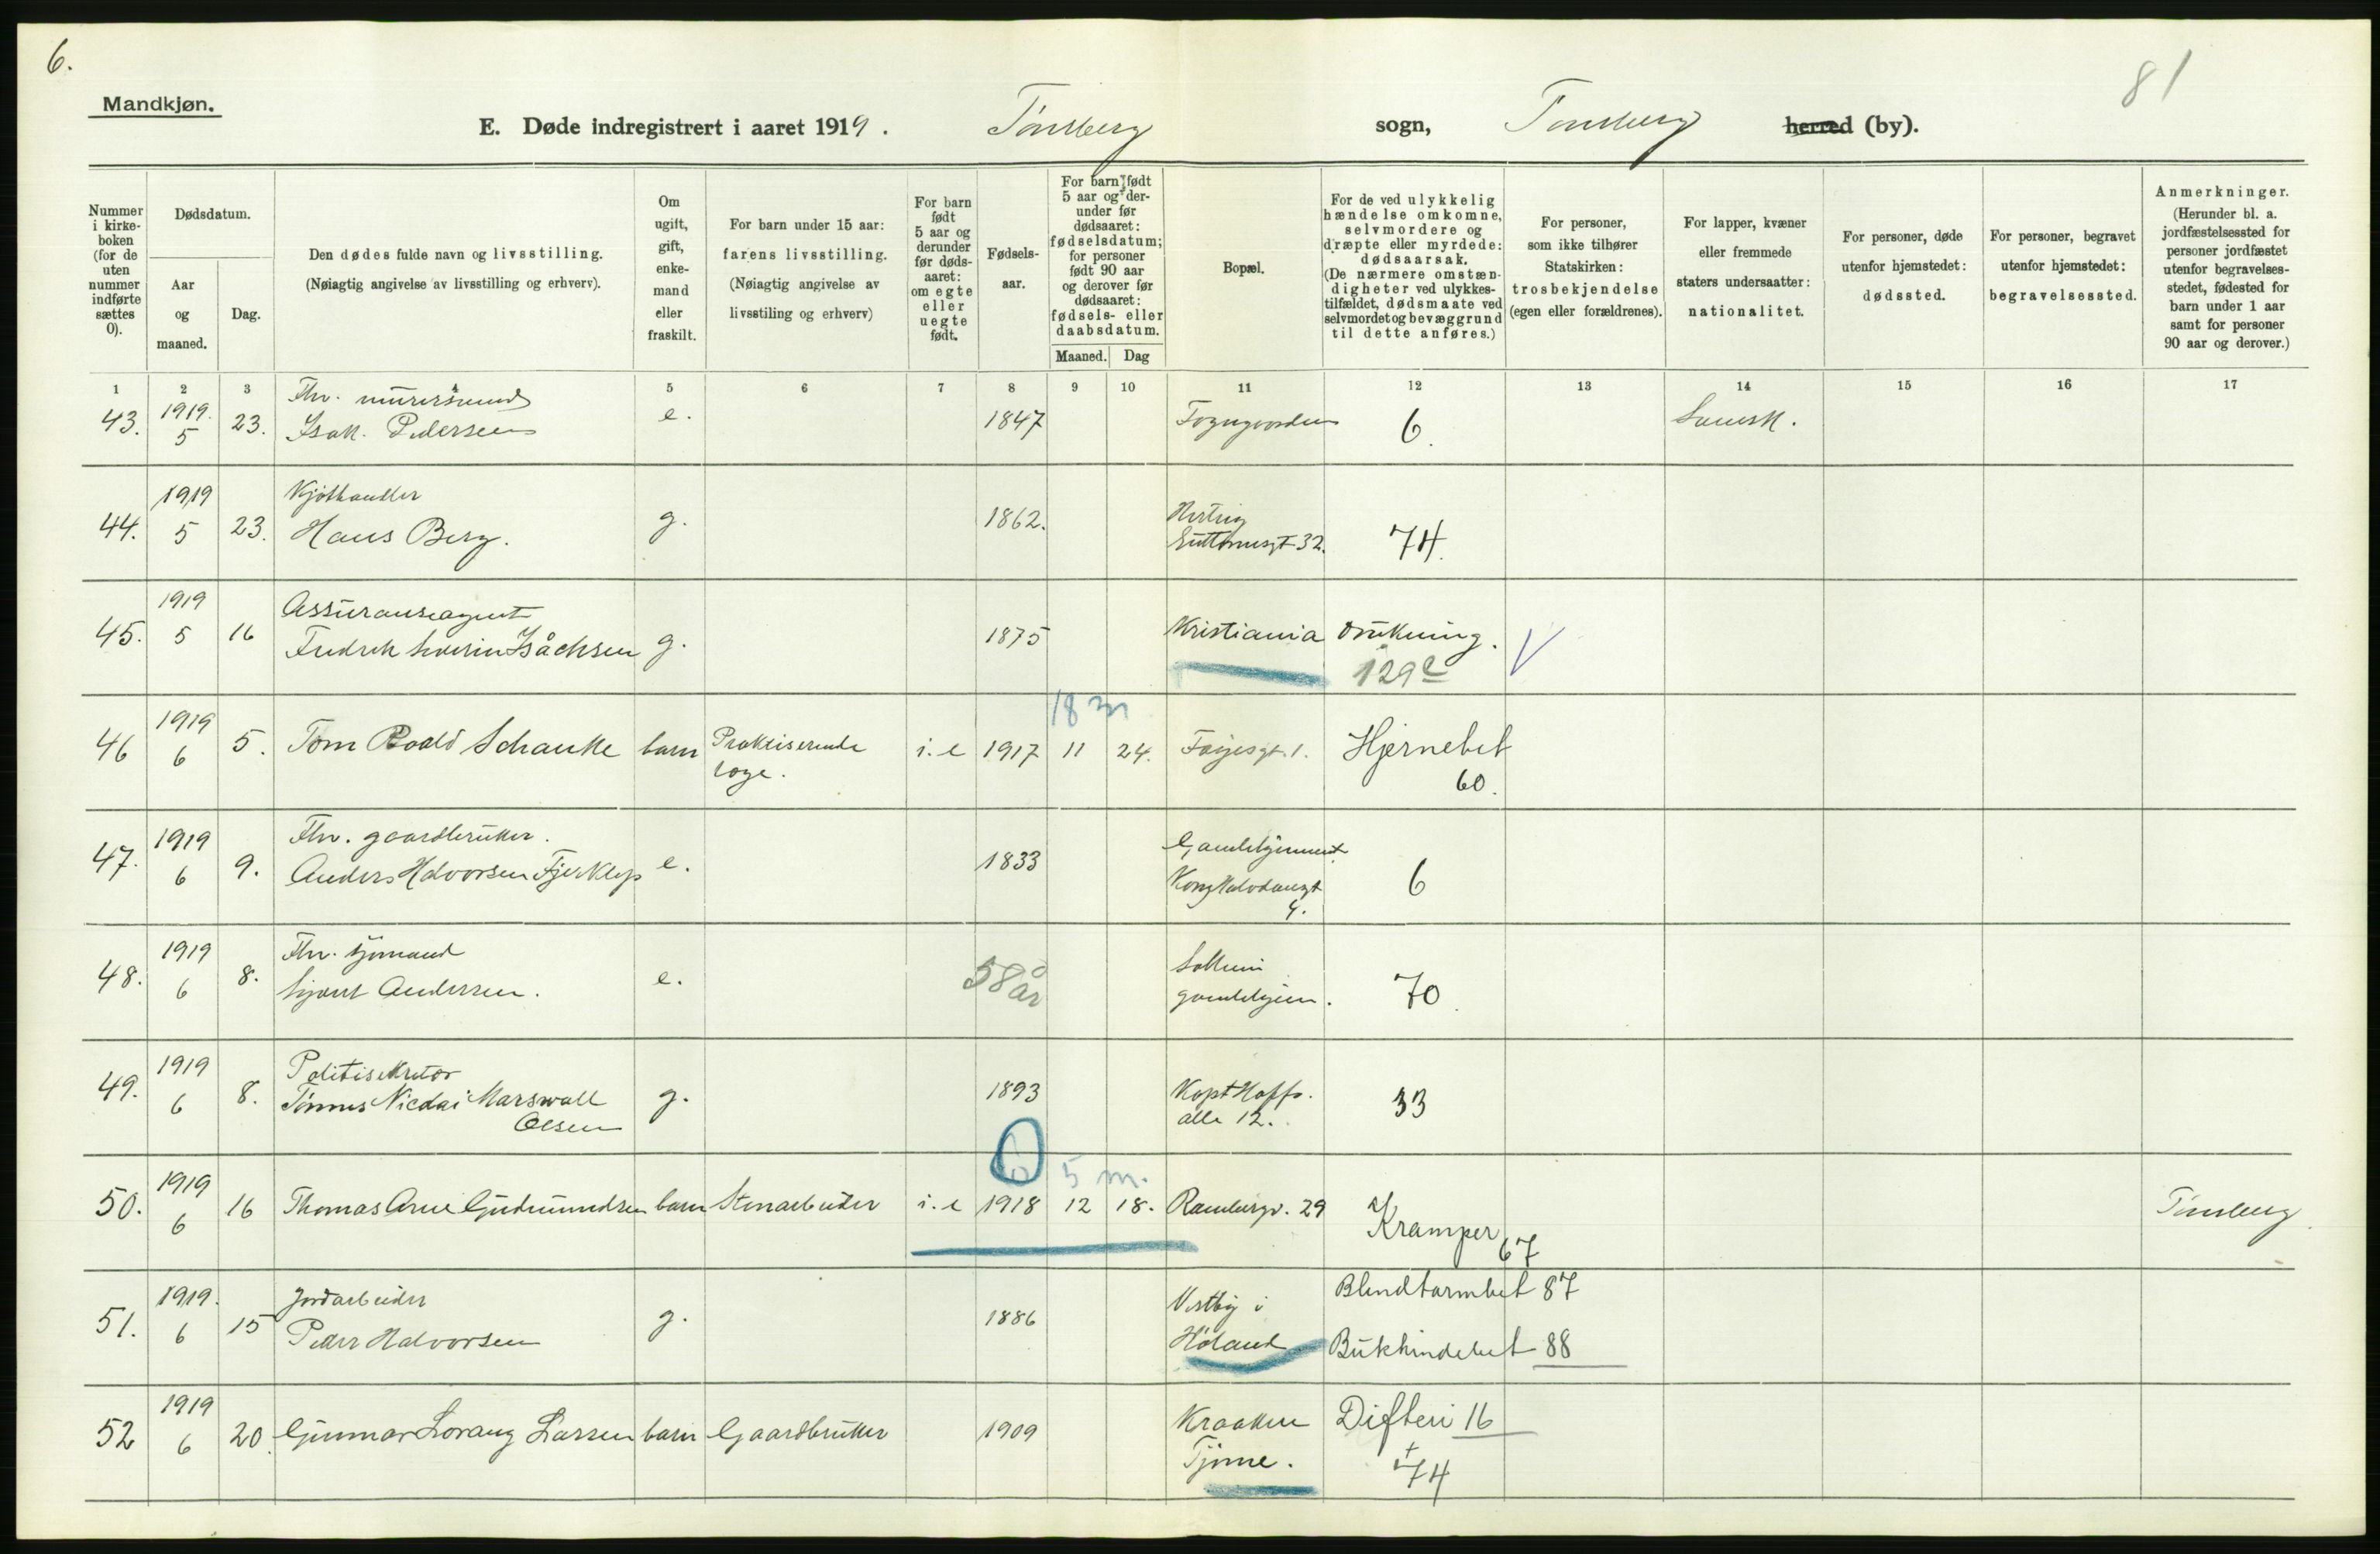 6.
81
Mandkjøn.
E. Døde indregistrert i aaret 1919. Tønsberg sogn, Tønsberg herred (by).
Nummer i kirke-boken (for de uten nummer indførte sættes 0).
Dødsdatum.
Aar og maaned.
Dag.
Den dødes fulde navn og livsstilling.
(Nøiagtig angivelse av livsstilling og erhverv).
Om ugift, gift, enke-mand eller fraskilt.
For barn under 15 aar: farens livsstilling.
(Nøiagtig angivelse av livsstiling og erhverv)
For barn født 5 aar og derunder før døds-aaret: om egte eller uegte født.
Fødsels-aar.
For barn født 5 aar og der-under før dødsaaret: fødselsdatum; for personer født 90 aar og derover før dødsaaret: fødsels- eller daabsdatum.
Maaned. Dag
Bopæl.
For de ved ulykkelig hændelse omkomne, selvmordere og dræpte eller myrdede: dødsaarsak.
(De nærmere omstæn-digheter ved ulykkes-tilfældet, dødsmaate ved selvmordet og bevæggrund til dette anføres.)
For personer, som ikke tilhører Statskirken: trosbekjendelse (egen eller forældrenes).
For lapper, kvæner eller fremmede staters undersaatter: nationalitet.
For personer, døde utenfor hjemstedet: dødssted.
For personer, begravet utenfor hjemstedet: begravelsessted.
Anmerkninger.
(Herunder bl. a. jordfæstelsessted for personer jordfæstet utenfor begravelses-stedet, fødested for barn under 1 aar samt for personer 90 aar og derover.)
1 2 3 5 6 7 8 9 10 11 12 13 14 15 16 17
Fhv. murersvend
43. 1919. 5 23. Isak Pedersen e. 1847 6. Svensk.
Kjøthandler
44. 1919 5 23. Hans Berg. g. 1862. Hertug Guttormsgt 32. 74.
Assuranseagent
45. 1919 5 16 Fredrik Severin Isåchsen g. 1875 Kristiania Drukning. V
129e
18 m
46 1919 6 5. Tom Roald Schanke barn Praktiserende læge. i. e 1917 11 24. Færjesgt. 1. Hjernebet
60.
Fhv. gaardbruker.
47. 1919 6 9. Anders Halvorsen e. 1833 Gamlehjemmet Kong Halvdansgt 4. 6
Fhv. sjømand
48. 1919 6 8. Andersen. e. 58 år Solheim gamlehjem. 70
Politisekretær
49. 1919 6 8. Tønnes Nicolai Marswall Olsen g. 1893 Kapt Hoffs. alle 12. 33
0 5 m.
50. 1919 6 16 Thomas Arne Gudmundsen barn Stenarbeider i. e 1918 12 18. Rambergv. 29 Kramper 67 Tønsberg
Jordarbeider
51. 1919. 6 15 Peder Halvorsen g. 1886 Vestby i Høland Blindtarmbet 87
Bukhindebet 88
52 1919 6 20. Gunnar Lorang Larsen barn Gaardbruker 1909 Kraakere Tjøme. Difteri 16
+ 74